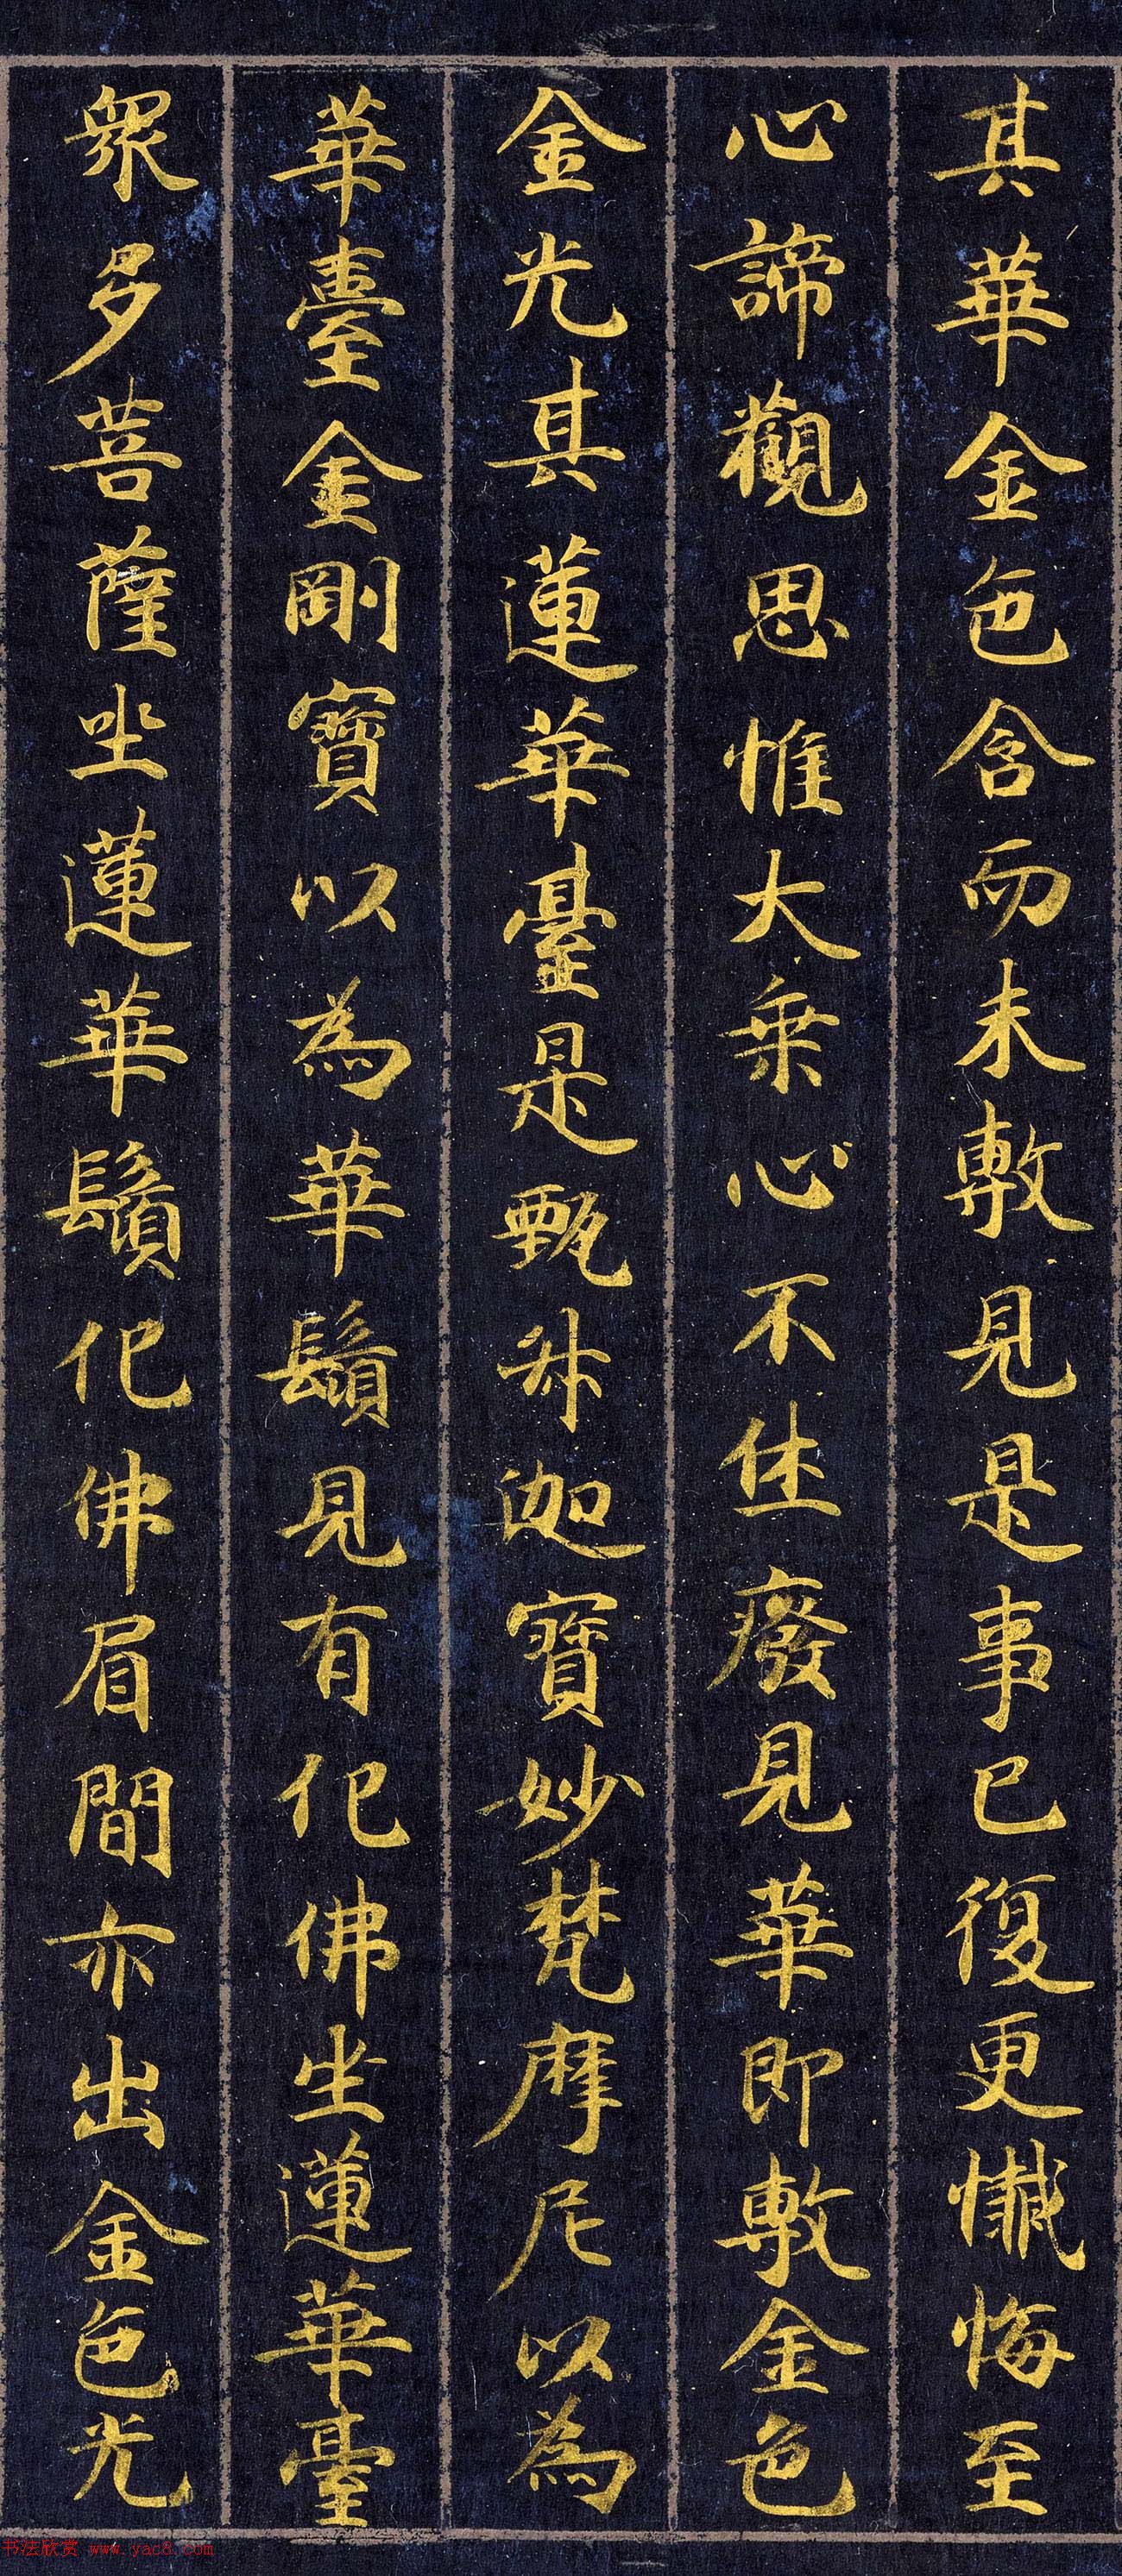 其華金色含而未敷見是事已復更懺悔至
心諦觀思惟大乗心不休廢見華即敷金色
金光其蓮華臺是甄叔迦寶妙梵摩尼以為
華臺金剛寶以為華鬚見有化佛坐蓮華臺
衆多菩薩坐蓮華鬚化佛眉間亦出金色光
书法欣赏 www.yac8.com